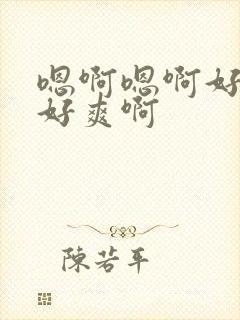 嗯啊嗯啊好
好爽啊
陳若平